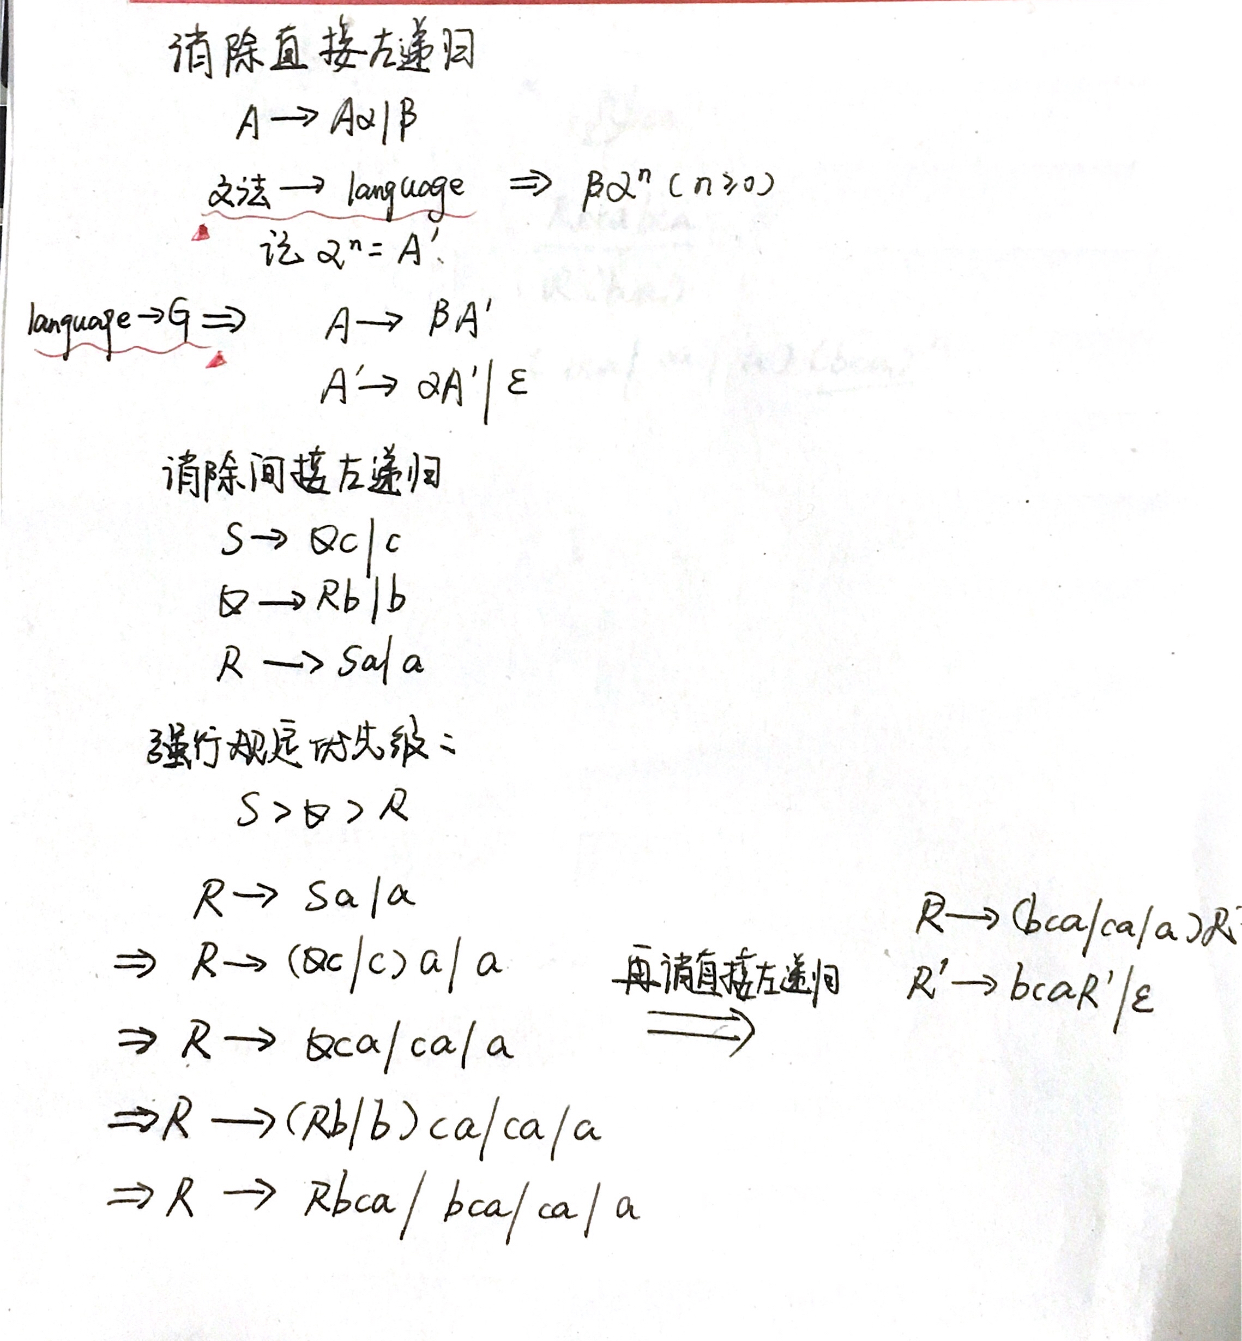 消除直接左递归
A → Aα|β
文法 → language ⇒ βαⁿ (n≥0)
记 αⁿ = A'.
language → G ⇒ A → βA'
A' → αA'|ε
消除间接左递归
S → Qc|c
Q → Rb|b
R → Sa|a
强行规定优先级:
S > Q > R
R → Sa|a
⇒ R → (Qc|c)a|a
⇒ R → Qca|ca|a
⇒ R → (Rb|b)ca|ca|a
⇒ R → Rbca|bca|ca|a
再消直接左递归
R → (bca|ca|a)R'
R' → bcaR'|ε